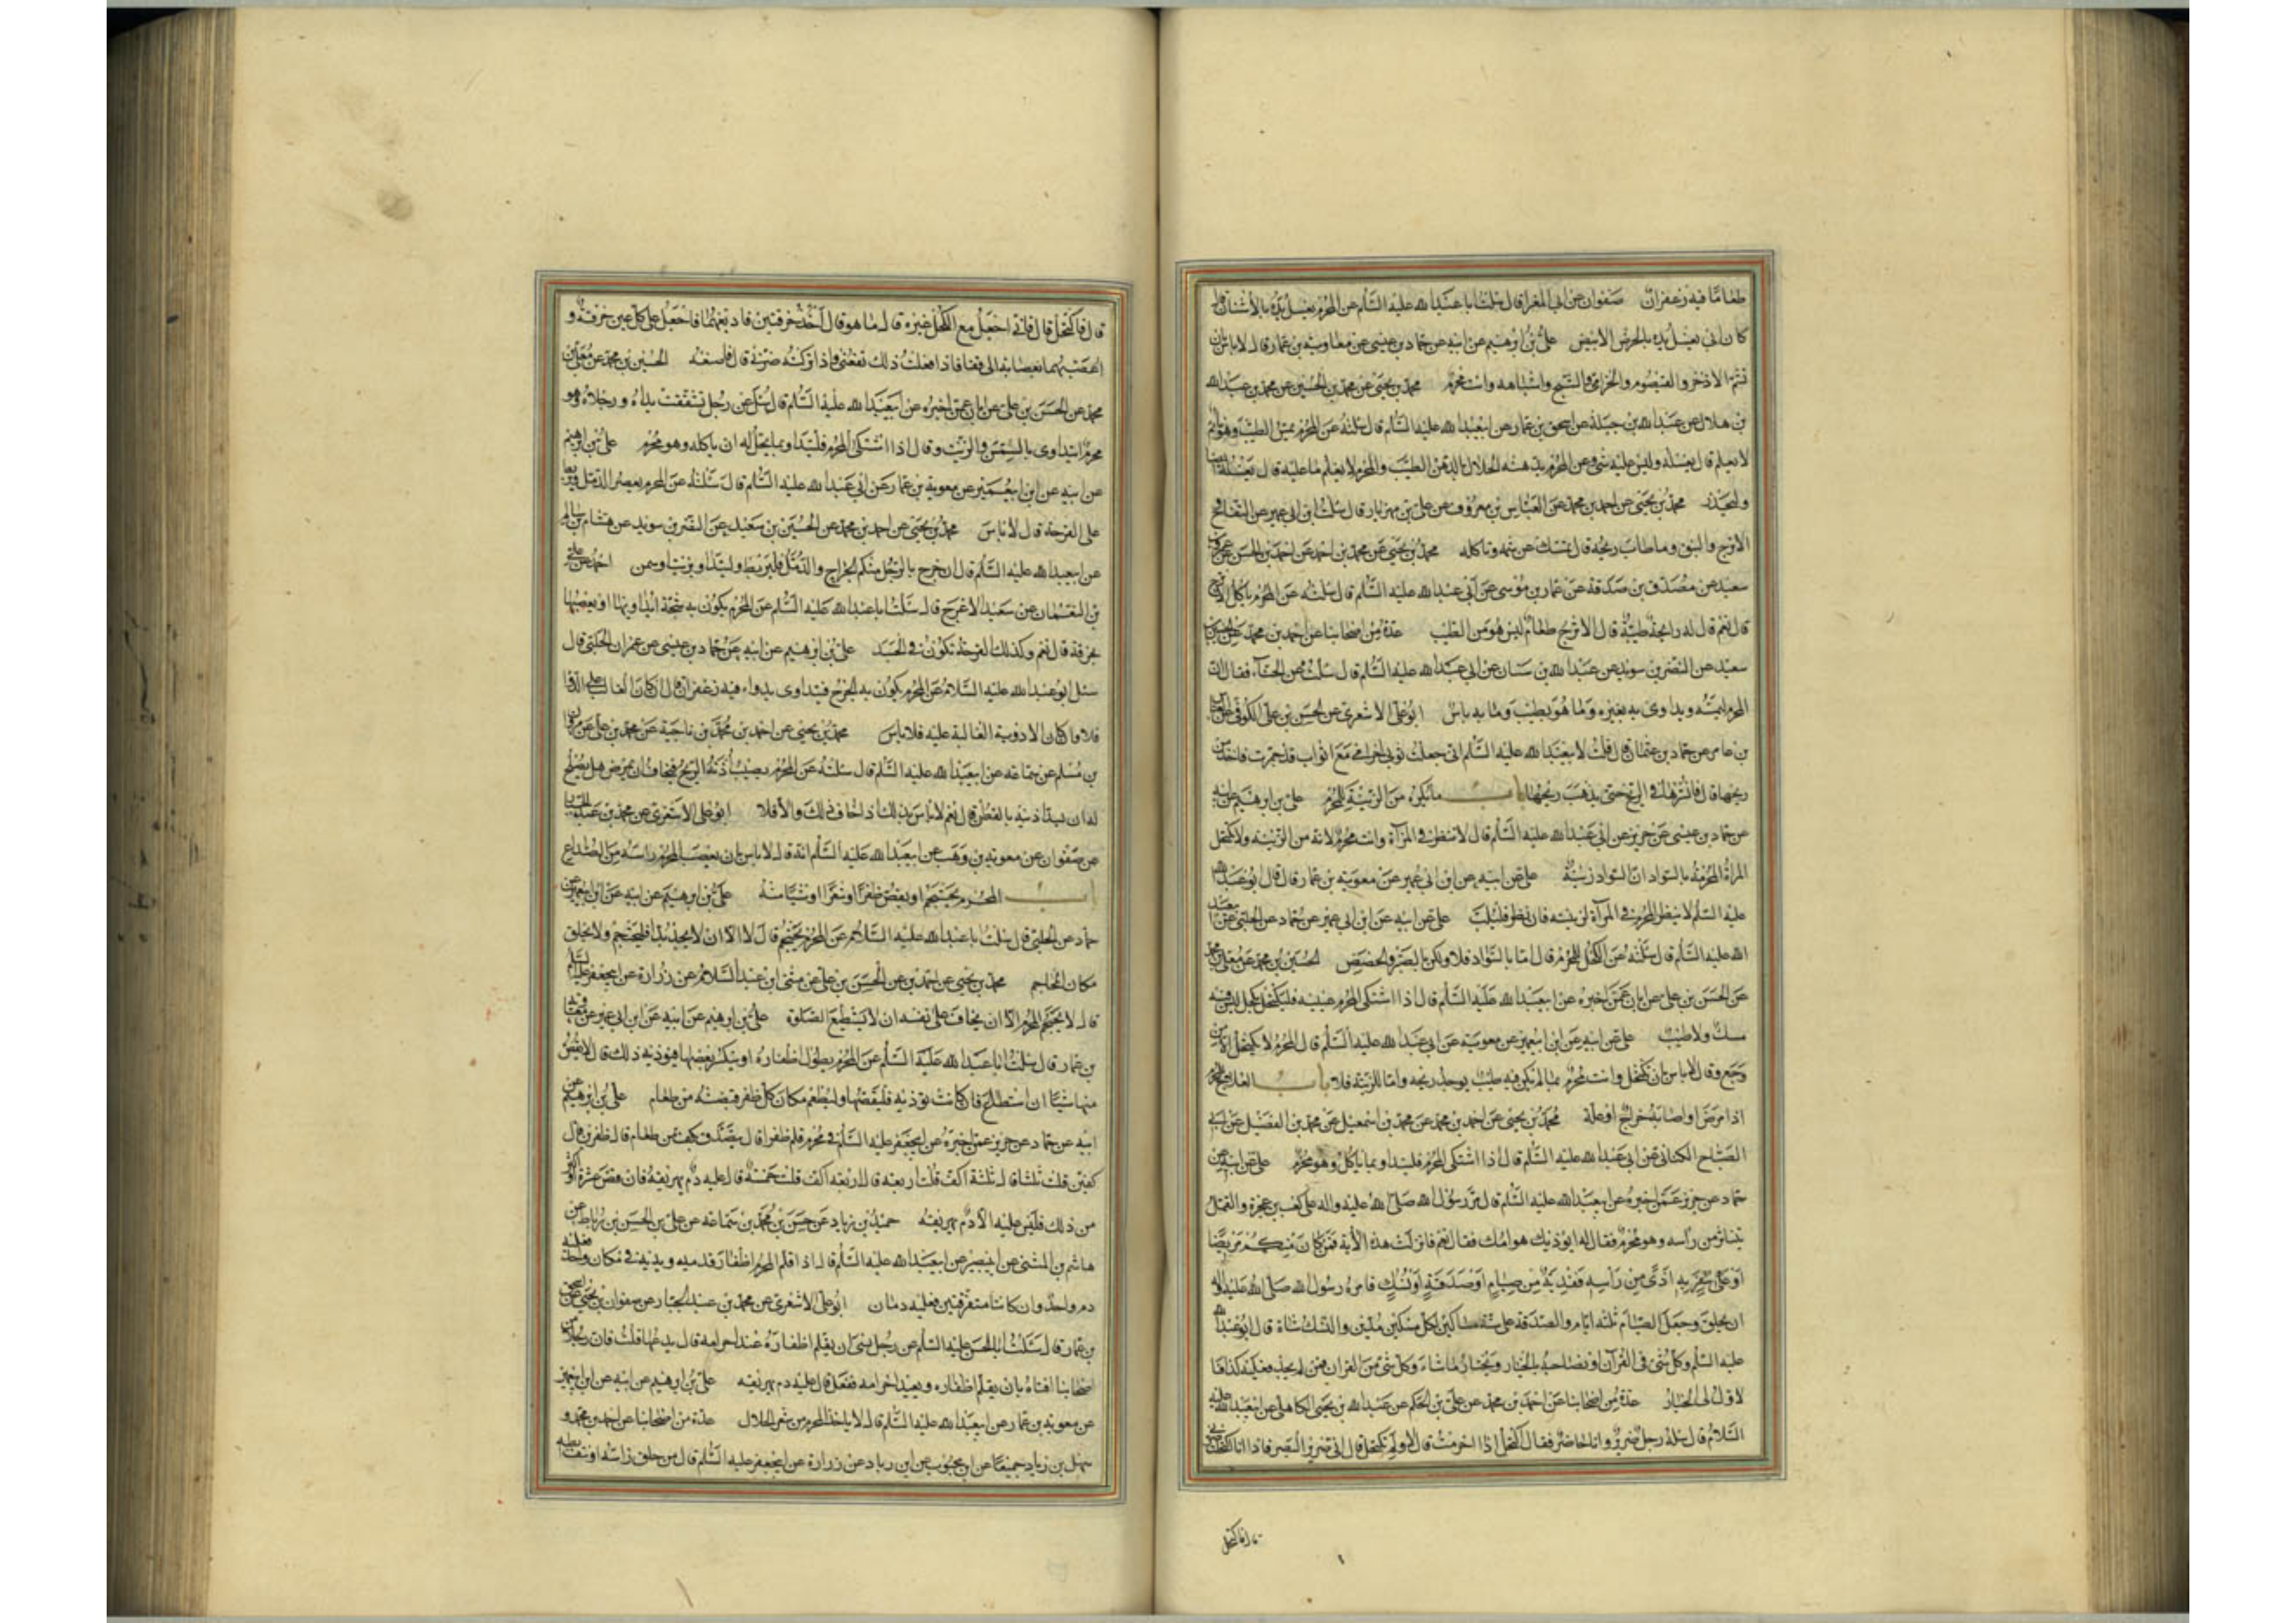 طعاما فيه زعفران صفوان عن ابى المغرا قال سئلت ابا عبد الله عليه السّلم عن المحرم يغسل يده بالأشنان قال
كان ابى يغسل يده بالحرض الابيض علىّ بن ابرهيم عن ابيه عن حماد بن عيسى عن معاوية بن عمار قال لا باس ان
تشمّ الاذخر والقيصوم والخزامى والشيح واشباهه وانت محرم محمد بن يحيى عن محمد بن الحسين عن محمد بن عبد الله
بن هلال عن عبد الله بن جبلة عن اسحق بن عمار عن ابيعبد الله عليه السّلم قال سئلته عن المحرم يمسّ الطيب وهو نائم
لا يعلم قال يغسله وليس عليه شئ وعن المحرم يدهنه الحلال بالدهن الطيّب والمحرم لا يعلم ما عليه قال يغسله ايضا
وليحذر محمد بن يحيى عن احمد بن محمد عن العباس بن معروف عن على بن مهزيار قال سئلت ابن ابى عمير عن التفاح و
الاترج والنبق وما طاب ريحه قال تمسك عن شمه وتاكله محمد بن يحيى عن محمد بن احمد عن احمد بن الحسن عن عمرو بن
سعيد عن مصدّق بن صدقة عن عمار بن موسى عن ابى عبد الله عليه السّلم قال سئلته عن المحرم ياكل الاترج
قال نعم قال له رايحة طيبة قال الاترج طعام ليس هو من الطيب عدة من اصحابنا عن احمد بن محمد عن الحسين بن
سعيد عن النضر بن سويد عن عبد الله بن سنان عن ابى عبد الله عليه السّلم قال سئلت عن الحناء فقال انّ
المحرم ليمسّه ويداوى به بعيره وما هو بطيب وما به باس ابو على الاشعرى عن الحسن بن على الكوفى عن العباس
بن عامر عن حماد بن عثمان قال قلت لابيعبد الله عليه السّلم انى جعلت ثوبى احرامى مع اثواب قد جمرت فاخذ من
ريحها قال فانشرها فى الريح حتى يذهب ريحها باب ما يكره من الزينة للمحرم على بن ابرهيم عن ابيه
عن حماد بن عيسى عن حريز عن ابى عبد الله عليه السّلم قال لا تنظر فى المرآة وانت محرم لانه من الزينة ولا تكتحل
المراة المحرمة بالسواد انّ السواد زينة على عن ابيه عن ابن ابى عمير عن معوية بن عمار قال قال ابو عبد الله
عليه السّلم لا ينظر المحرم فى المرآة لزينة فان نظر فليلبّ على عن ابيه عن ابن ابى عمير عن حماد عن الحلبى عن ابيعبد
الله عليه السّلم قال سئلته عن الكحل للمحرم قال امّا بالسّواد فلا ولكن بالصبر والحضض الحسين بن محمد عن معلى بن محمد
عن الحسن بن على عن ابان عمّن اخبره عن ابيعبد الله عليه السّلم قال اذا اشتكى المحرم عينيه فليكتحل بكحل ليس فيه
مسك ولا طيب على عن ابيه عن ابن ابيعمير عن معوية عن ابى عبد الله عليه السّلم قال المحرم لا يكتحل الا من
وجع وقال لا باس بان تكتحل وانت محرم بما لم يكن فيه طيب يوجد ريحه وامّا للزينة فلا باب العلاج للمحرم
اذا مرض او اصابه جراح او علة محمد بن يحيى عن احمد بن محمد عن محمد بن اسمعيل عن محمد بن الفضيل عن ابى
الصباح الكنانى عن ابى عبد الله عليه السّلم قال اذا اشتكى المحرم فليتداو بما ياكل وهو محرم على عن ابيه عن
حماد عن حريز عمّن اخبره عن ابيعبد الله عليه السّلم قال مرّ رسول الله صلّى الله عليه واله على كعب بن عجرة والقمل
يتناثر من رأسه وهو محرم فقال له ايؤذيك هوامك فقال نعم فانزلت هذه الأية فمن كان منكم مريضا
او على سفر به اذى من راسه ففدية من صيام او صدقة او نسك فامره رسول الله صلّى الله عليه واله
ان يحلق وجعل الصيام ثلثة ايام والصدقة على ستة مساكين لكل مسكين مدّين والنسك شاة قال ابو عبد الله
عليه السّلم وكل شئ فى القرآن او فصاحبه بالخيار ويختار ما شاء وكل شئ من القران فمن لم يجد فعليه كذا فا
لاول الى الخيار عدة من اصحابنا عن احمد بن محمد عن على بن الحكم عن عبد الله بن يحيى الكاهلى عن ابيعبد الله عليه
السّلام قال سئله رجل ضرير وانا حاضر فقال اكتحل اذا احرمت قال لا ولم تكتحل قال انى ضرير البصر فاذا انا اكتحلت نفعنى
قال فاكتحل
قال فاكتحل قال فانى اجعل مع الكحل غيره قال ما هو قال آخذ خرقتين فاربعهما فاجعل على كل عين خرقة و
اعصبهما بعصابة الى قفاى فاذا فعلت ذلك نفعنى واذا تركته ضرّنى قال فاصنعه الحسين بن محمد عن معلى بن
محمد عن الحسن بن على عن ابان عمّن اخبره عن ابيعبد الله عليه السّلم قال سئل عن رجل تشققت يداه ورجلاه وهو
محرم ايتداوى بالسمن والزيت وقال اذا اشتكى المحرم فليتداو بما يحل له ان ياكله وهو محرم على بن ابرهيم
عن ابيه عن ابن ابيعمير عن معوية بن عمار عن ابى عبد الله عليه السّلم قال سئلته عن المحرم يعصر الدمّل ويربط
على القرحة قال لا باس محمد بن يحيى عن احمد بن محمد عن الحسين بن سعيد عن النضر بن سويد عن هشام بن سالم
عن ابيعبد الله عليه السّلم قال ان خرج بالرجل منكم الخراج والدمّل فليربط وليتداو بزيت او سمن احمد عن على
بن النعمان عن سعيد الاعرج قال سئلت ابا عبد الله عليه السّلم عن المحرم يكون به شجّة ايداويها او يعصبها
بخرقة قال نعم وكذلك القرحة تكون فى الجسد على بن ابرهيم عن ابيه عن حماد بن عيسى عن عمران الحلبى قال
سئل ابو عبد الله عليه السّلام عن المحرم يكون به الجرح فيتداوى بدواء فيه زعفران قال ان كان الغالب على الدّوا
فلا وان كان الادوية الغالبة عليه فلا باس محمد بن يحيى عن احمد بن محمد بن ناجية عن محمد بن على عن مروان
بن مسلم عن سماعه عن ابيعبد الله عليه السّلم قال سئلته عن المحرم يصيب اذنه الريح فيخاف ان يمرض هل يصلح
له ان يسدّ اذنيه بالقطن قال نعم لا باس بذلك اذا خاف ذلك والّا فلا ابو على الاشعرى عن محمد بن عبد الجبار
عن صفوان عن معوية بن وهب عن ابيعبد الله عليه السّلم انه قال لا باس بان يعصب المحرم راسه من الصداع
باب المحرم يحتجم او يقص ظفرا او شعرا او شيئا منه على بن ابرهيم عن ابيه عن ابن ابيعمير عن
حماد عن الحلبى قال سئلت ابا عبد الله عليه السّلام عن المحرم يحتجم قال لا الا ان لا يجد بدا فليحتجم ولا يحلق
مكان المحاجم محمد بن يحيى عن احمد بن عن الحسن بن على عن مثنى ابن عبد السّلام عن زرارة عن ابيجعفر عليه السّلم
قال لا يحتجم المحرم الا ان يخاف على نفسه ان لا يستطيع الصلوة على بن ابرهيم عن ابيه عن ابن ابى عمير عن معوية
بن عمار قال سئلت ابا عبد الله عليه السّلم عن المحرم يطول اظفاره او ينكسر بعضها فيؤذيه ذلك قال لا يقص
منها شيئا ان استطاع فان كانت تؤذيه فليقصّها وليطعم مكان كل ظفر قبضة من طعام على بن ابرهيم عن
ابيه عن حماد عن حريز عمن اخبره عن ابيجعفر عليه السّلم فى محرم قلم ظفرا قال يتصدّق بكف من طعام قال ظفرين قال
كفين قلت ثلثا قال ثلثة اكف قلت اربعة قال اربعه اكف قلت خمسة قال عليه دم يهريقه فان قص عشرة او اكثر
من ذلك فليس عليه الا دم يهريقه حميد بن زياد عن حسن بن محمد بن سماعه عن على بن الحسن بن رباط عن
هاشم بن المثنى عن ابيبصير عن ابيعبد الله عليه السّلم قال اذا قلم المحرم اظفار قدميه ويديه فى مكان واحد فعليه
دم واحد وان كانتا متفرقتين فعليه دمان ابو على الاشعرى عن محمد بن عبد الجبار عن صفوان بن يحيى عن اسحق
بن عمار قال سئلت ابا الحسن عليه السّلم عن رجل نسى ان يقلم اظفاره عند احرامه قال يدعها قلت فان رجلا من
اصحابنا افتاه بان يقلم اظفاره ويعيد احرامه ففعل قال عليه دم يهريقه على بن ابرهيم عن ابيه عن ابن ابيعمير
عن معوية بن عمار عن ابيعبد الله عليه السّلم قال لا ياخذ المحرم من شعر الحلال عدة من اصحابنا عن احمد بن محمد و
سهل بن زياد جميعا عن ابن محبوب عن ابن رباد عن زرارة عن ابيجعفر عليه السّلم قال من حلق راسه او نتف ابطه